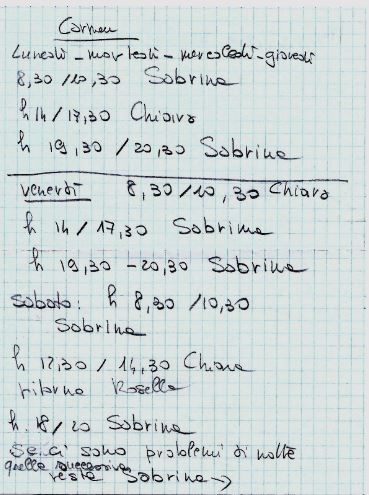 Carmen
Lunedì - martedì - mercoledì - giovedì
8,30 / 10,30 Sabrina
h 14 / 17,30 Chiara
h 19,30 / 20,30 Sabrina
venerdì 8,30 / 10,30 Chiara
h 14 / 17,30 Sabrina
h 19,30 - 20,30 Sabrina
sabato: h 8,30 / 10,30
Sabrina
h 12,30 / 14,30 Chiara
ritorna Rosella
h. 18 / 20 Sabrina
Se ci sono problemi di notte
quella successiva
resta Sabrina →